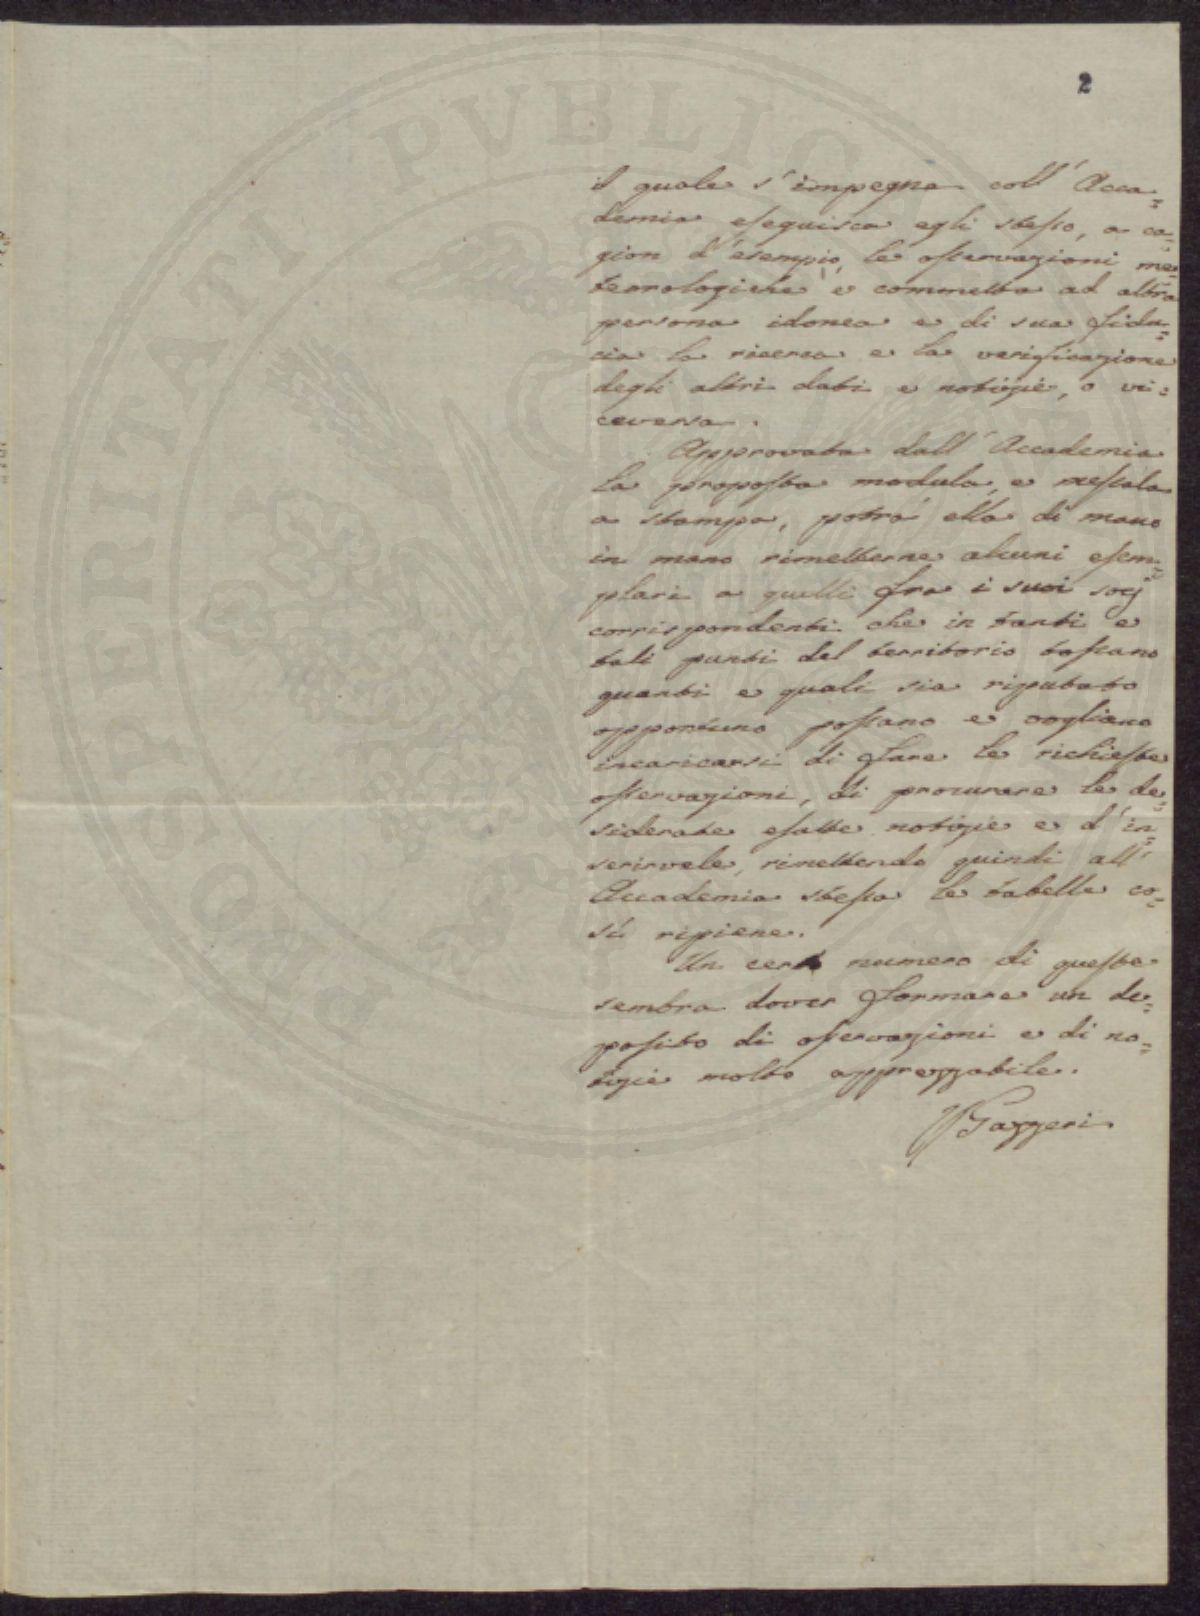 2
il quale s'impegna coll'Acca=
demia eseguisca egli stesso, a ca=
gion d'esempio, le osservazioni me=
teorologiche e commetta ad altra
persona idonea e di sua fidu=
cia la ricerca e la verificazione
degli altri dati e notizie, o vi=
ceversa.
Approvata dall'Accademia
la proposta modula, e messala
a stampa, potrà ella di mano
in mano rimetterne alcuni esem=
plari a quelli fra i suoi socj
corrispondenti che in tanti e
tali punti del territorio toscano
quanti e quali sia riputato
opportuno possano e vogliano
incaricarsi di fare le richieste
osservazioni, di procurare le de=
siderate esatte notizie e d'in=
serirvele, rimettendo quindi all'
Accademia stessa le tabelle co=
sì ripiene.
Un certo numero di queste
sembra dover formare un de=
posito di osservazioni e di no=
tizie molto apprezzabile.
Gazzeri
PROSPERITATI PVBLICAE